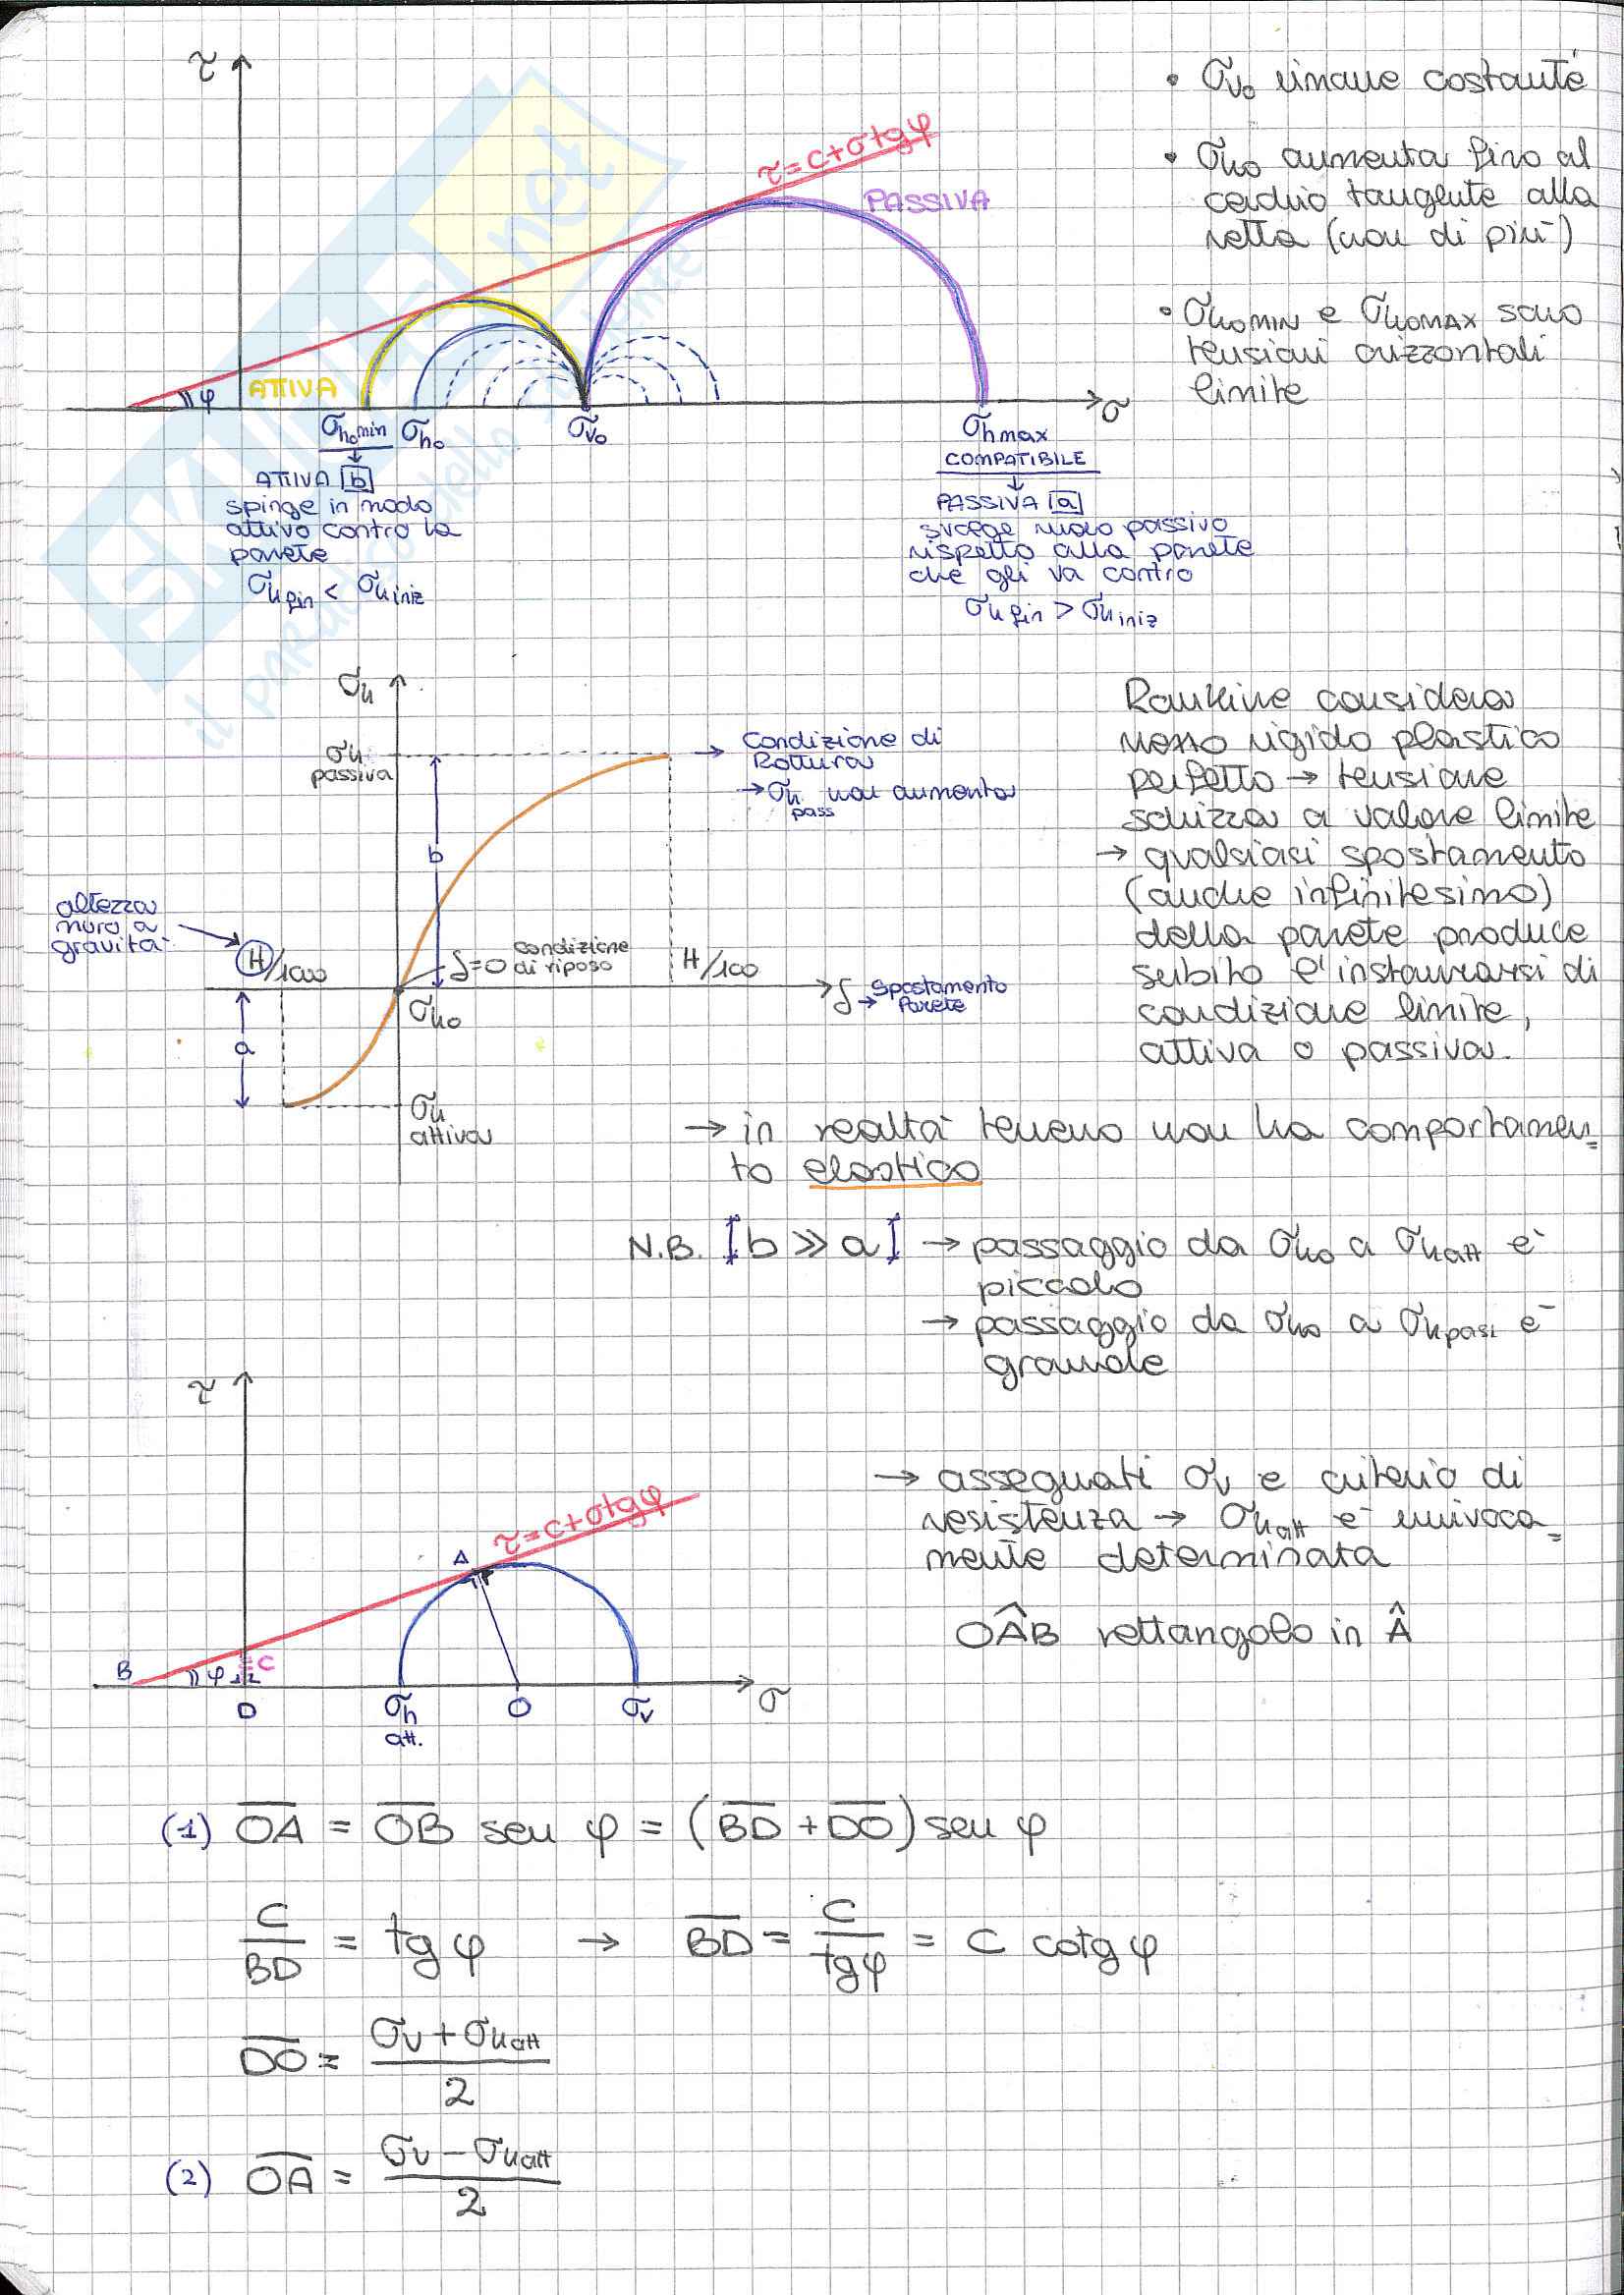 τ
τ=c+σtgφ
PASSIVA
ATTIVA
φ
σ
σho min
σho
σvo
σhmax
COMPATIBILE
ATTIVA [b]
spinge in modo
attivo contro la
parete
σh fin < σh iniz
PASSIVA [a]
svolge ruolo passivo
rispetto alla parete
che gli va contro
σh fin > σh iniz
• σvo rimane costante
• σho aumenta fino al
cerchio tangente alla
retta (non di più)
• σhoMIN e σhoMAX sono
tensioni orizzontali
limite
σh
σh
passiva
→ Condizione di
Rottura
→ σh pass non aumenta
b
altezza
muro a
gravità
H/1000
δ=0 condizione
di riposo
H/100
δ → Spostamento
Parete
σho
a
σh
attiva
Rankine considera
mezzo rigido plastico
perfetto → tensione
schizza a valore limite
→ qualsiasi spostamento
(anche infinitesimo)
della parete produce
subito l'instaurarsi di
condizione limite,
attiva o passiva.
→ in realtà terreno non ha comportamen=
to elastico
N.B. [b ≫ a] → passaggio da σho a σhatt è
piccolo
→ passaggio da σho a σhpass è
grande
τ
τ=c+σtgφ
A
B
φ
c
D
σh
att.
O
σv
σ
→ assegnati σv e criterio di
resistenza → σhatt è univoca=
mente determinata
OÂB rettangolo in Â
(1) OA = OB sen φ = (BD + DO) sen φ
c/BD = tg φ → BD = c/tgφ = c cotg φ
DO = (σv + σhatt)/2
(2) OA = (σv − σhatt)/2
SKUOLA.net
il paradiso dello studente